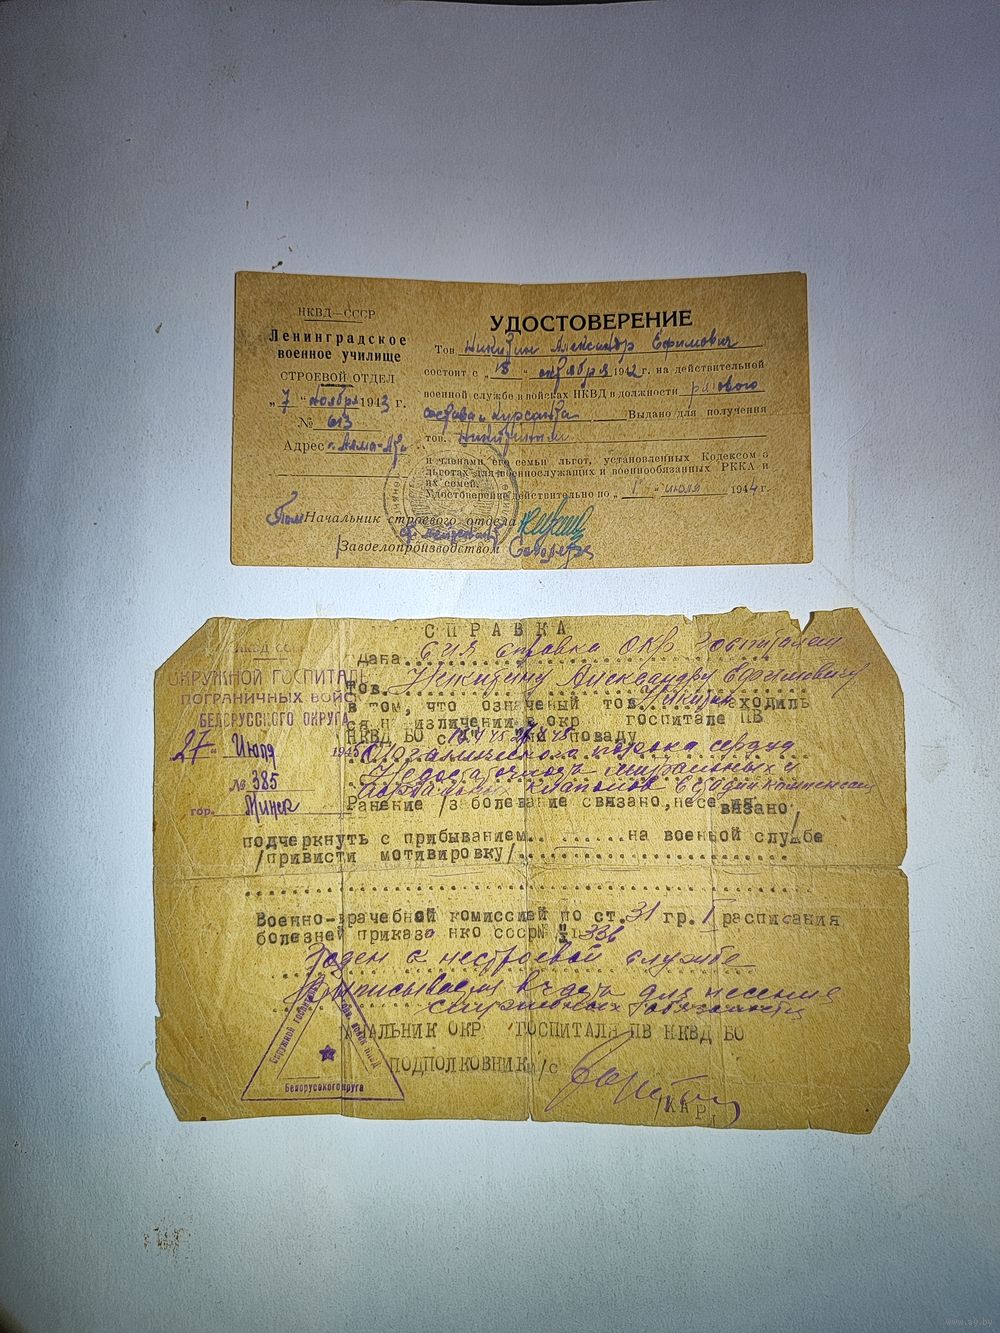 НКВД—СССР
Ленинградское
военное училище
СТРОЕВОЙ ОТДЕЛ
„ 7 “ ноября 1943 г.
№ 613
Адрес г. Алма-Ата
УДОСТОВЕРЕНИЕ
Тов Никитин Александр Ефимович
состоит с „ 18 “ октября 1942 г. на действительной
военной службе в войсках НКВД в должности рядового
состава курсанта Выдано для получения
тов. Никитиным
и членами его семьи льгот, установленных Кодексом о
льготах для военнослужащих и военнообязанных РККА и
их семей.
Удостоверение действительно по „ 1 “ июля 1944 г.
Пом Начальник строевого отдела
ст. лейтенант
Завделопроизводством
СПРАВКА
НКВД СССР
ОКРУЖНОЙ ГОСПИТАЛЬ
ПОГРАНИЧНЫХ ВОЙСК
БЕЛОРУССКОГО ОКРУГА
27 “ Июля 1945
№ 385
гор. Минск
Дана сия справка окр госпиталем
Тов. Никитину Александру Ефимовичу
в том, что означеный тов Никитин находиль
ся н изличении в окр госпитале ПВ
НКВД БО с по поваду
Органического порока сердца
Недостаточность митральных и
аортальных клапанов
Ранение /заболевание связано, несвязано/
подчеркнуть с прибыванием на военной службе
/привисти мотивировку/
Военно-врачебной комиссией по ст. 31 гр. I расписания
болезней приказо нко ссср № 336
Годен к нестроевой службе
Выписывается в часть для несения
служебных обязанностей
НАЧАЛЬНИК ОКР ГОСПИТАЛЯ ПВ НКВД БО
ПОДПОЛКОВНИК м/с
/КАР
Окружной госпиталь
Белорусского округа
www.ay.by